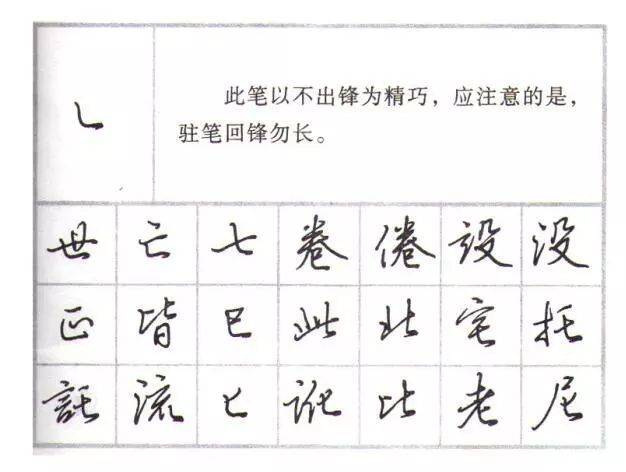 此笔以不出锋为精巧，应注意的是，
驻笔回锋勿长。
世 亡 七 卷 倦 設 没
正 皆 巳 此 北 宅 托
託 流 匕 訛 比 老 尼